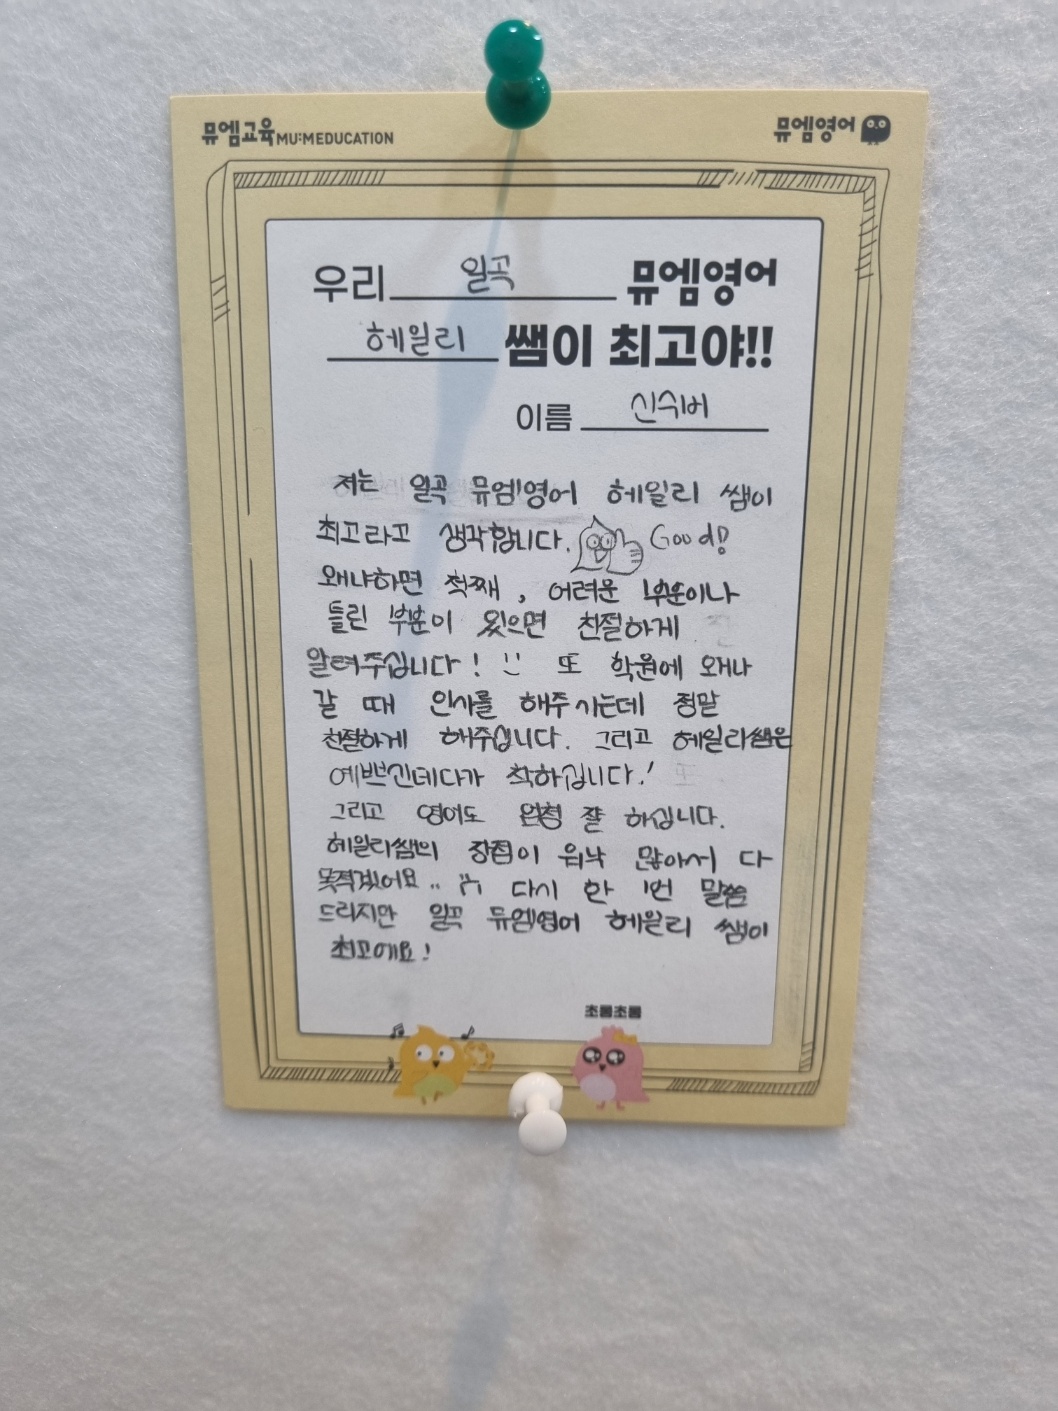 뮤엠교육 MU:MEDUCATION
뮤엠영어
우리 일곡 뮤엠영어
헤일리 쌤이 최고야!!
이름 신수버
저는 일곡 뮤엠영어 헤일리 쌤이
최고라고 생각합니다. Good!
왜냐하면 첫째, 어려운 부분이나
틀린 부분이 있으면 친절하게
알려주십니다! 또 학원에 오거나
갈 때 인사를 해주시는데 정말
친절하게 해주십니다. 그리고 헤일리쌤은
예쁘신데다가 착하십니다!
그리고 영어도 엄청 잘 하십니다.
헤일리쌤의 장점이 워낙 많아서 다
못적겠어요.. 다시 한 번 말씀
드리지만 일곡 뮤엠영어 헤일리 쌤이
최고에요!
초롱초롱